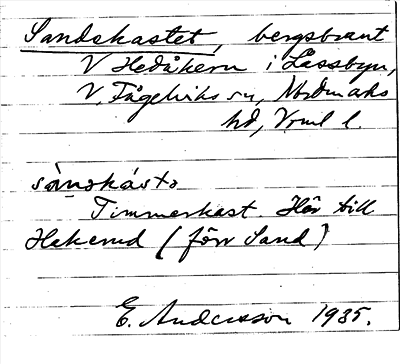 Sandskastet, bergsbrant
V Hedåkern i Låssbyn,
V. Fågelviks sn, Nordmarks
hd, Vrml l.
sànskásto
Timmerkast. Hör till
Hakerud (förr Sand)
E. Andersson 1935.